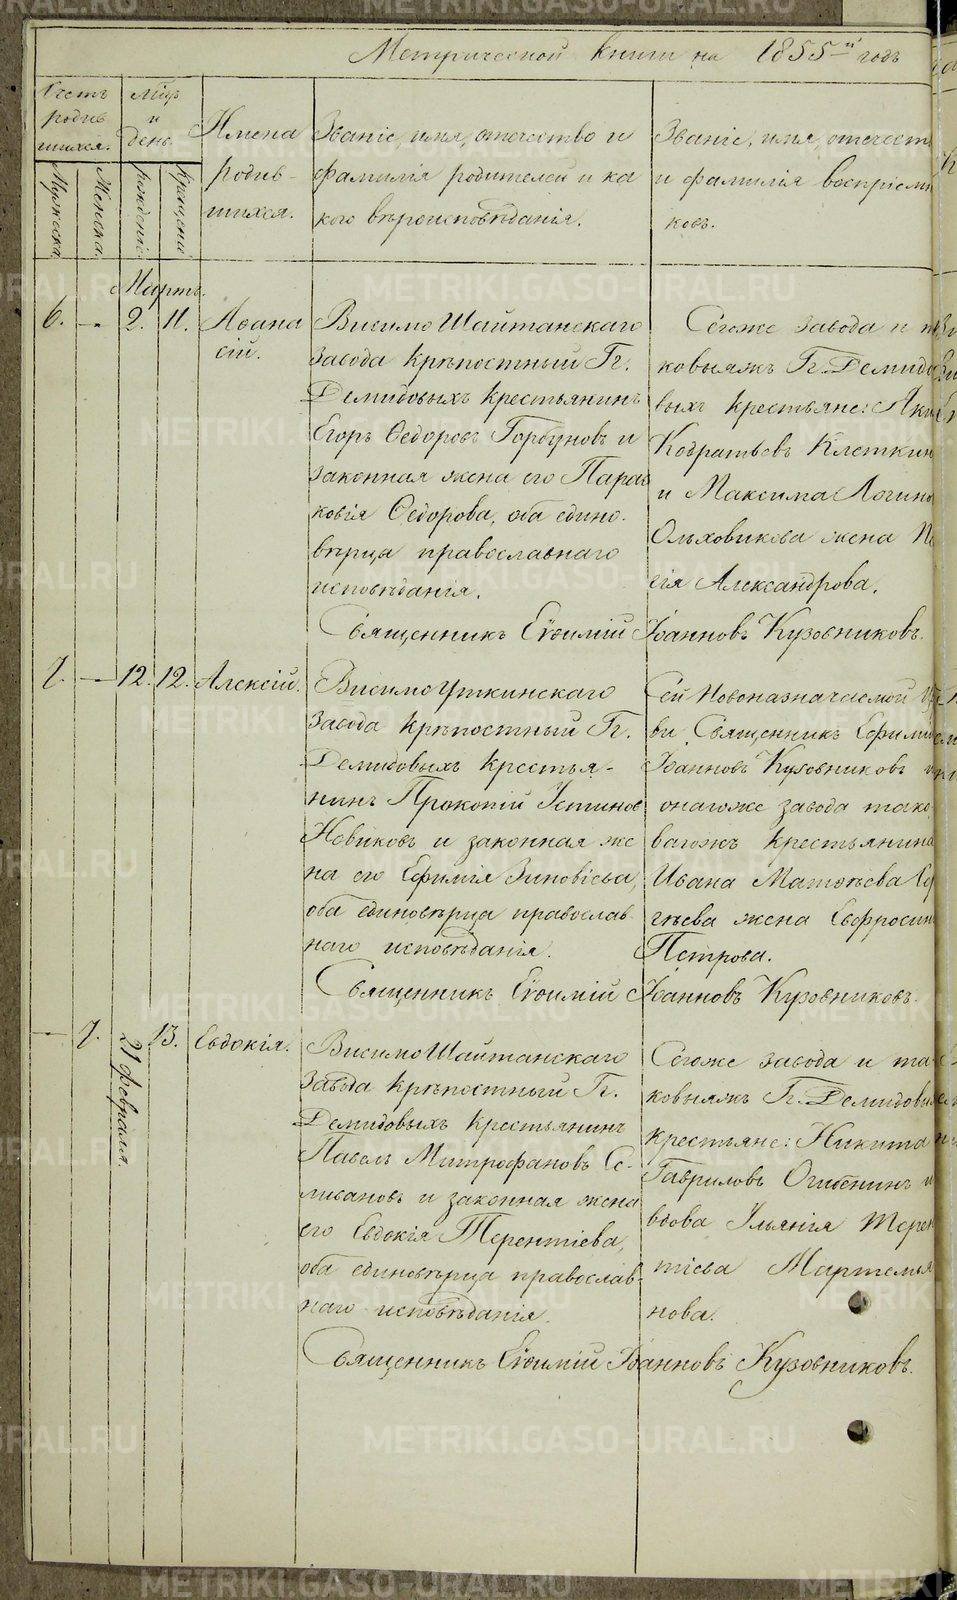 Метрической книги на 1855й годъ
Счетъ родив шихся.
Мужеска
Женска.
Мцъ и день.
рожденія
крещенія
Имена родив- шихся.
Званіе, имя, отечество и
фамилія родителей и ка
кого вѣроисповѣданія.
Званіе, имя, отечест
и фамилія воспріемн
ковъ.
Мартъ.
6. — 2. 11. Аѳана
сій.
Висимо Шайтанскаго
завода крѣпостный Гг.
Демидовыхъ крестьянинъ
Егоръ Ѳедоровъ Горбуновъ и
законная жена его Парас
ковія Ѳедорова, оба едино-
вѣрца православнаго
исповѣданія.
Сегоже завода и
ковыяжъ Гг. Демидо
выхъ крестьяне: Аки
Кодратьевъ Клеткин
и Максима Логино
Ольховикова жена
гія Александрова.
Священникъ Евѳимій Іоанновъ Кузовниковъ.
7. — 12. 12. Алексій.
Висимо Уткинскаго
завода крѣпостный Гг.
Демидовыхъ крестья-
нинъ Прокопій Устинов
Новиковъ и законная же
на его Ефимія Зиновіева,
оба единовѣрца православ
наго исповѣданія.
Сей Новоназначаемой Цр
ви Священникъ Ефими
Іоанновъ Кузовниковъ и
онагоже завода тако
вагожъ крестьянина
Ивана Матвѣева
гѣева жена Евфросин
Петрова.
Священникъ Евѳимій Іоанновъ Кузовниковъ.
— 7. 21 февраля. 13. Евдокія.
Висимо Шайтанскаго
завода крѣпостный Гг.
Демидовыхъ крестьянинъ
Павелъ Митрофановъ Се-
ливановъ и законная жена
его Евдокія Терентіева,
оба единовѣрца православ-
наго исповѣданія.
Сегоже завода и та
ковыяжъ Гг. Демидовы
крестьяне: Никита
Гавриловъ Огибенинъ и
вдова Ульянія Терен
тіева Мартемья
нова.
Священникъ Евѳимій Іоанновъ Кузовниковъ.
METRIKI.GASO-URAL.RU